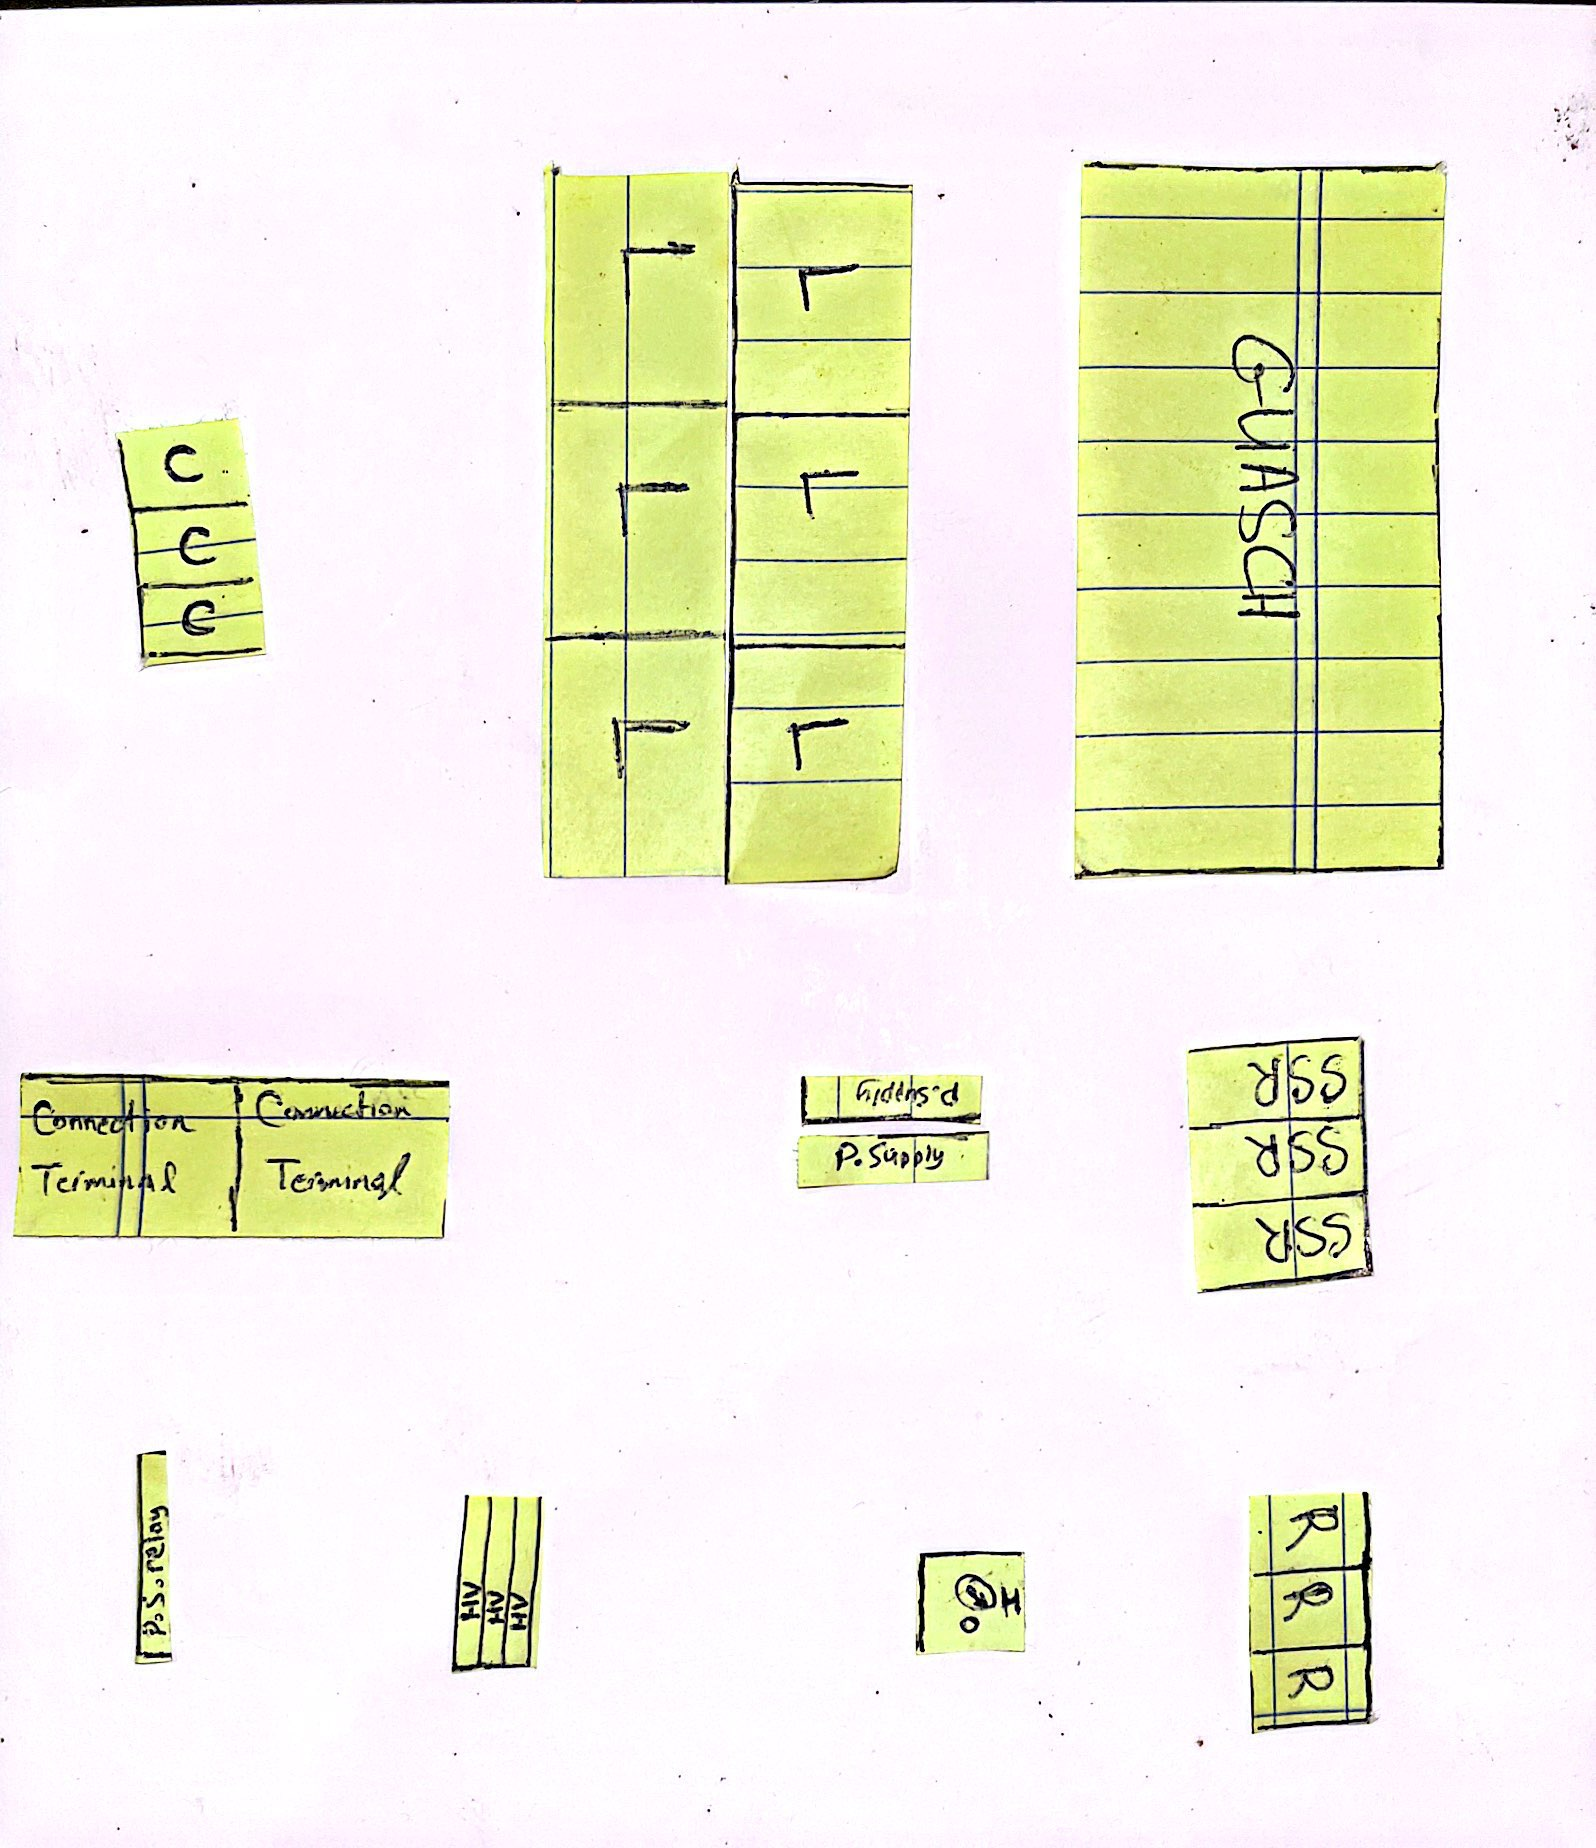 L
L
L
L
L
L
GUASCH
C
C
C
Connection
Terminal
Connection
Terminal
P.Supply
P.Supply
SSR
SSR
SSR
P.S.relay
HV
HV
HV
H
O
R
R
R